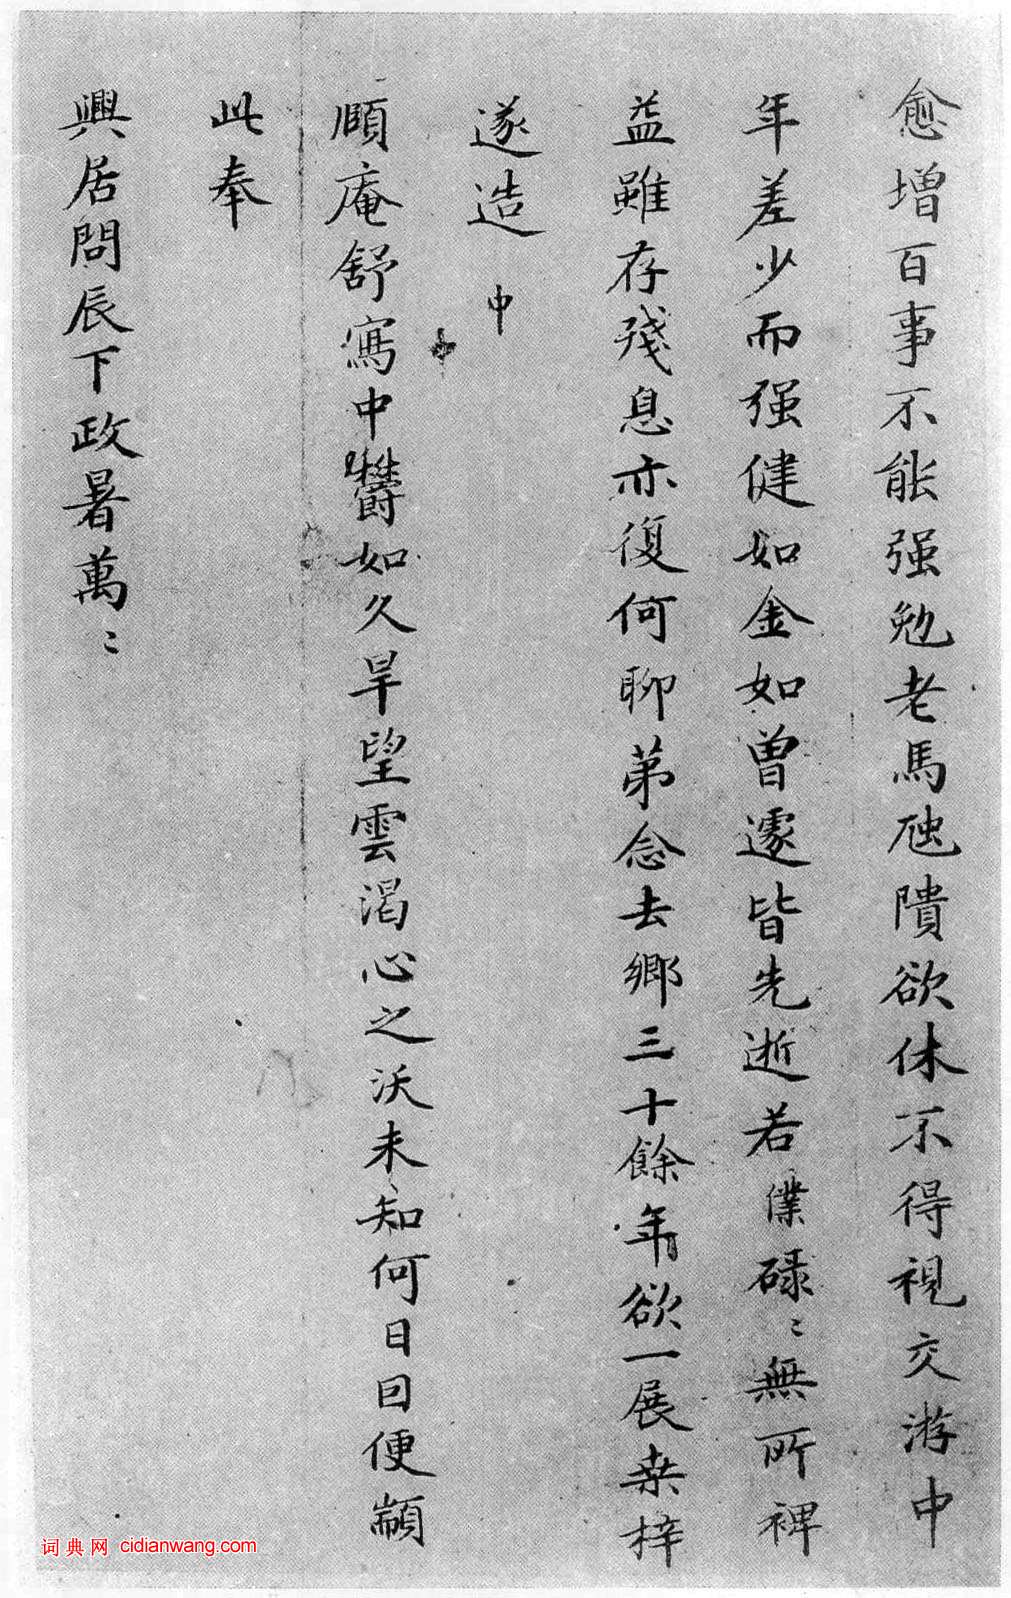 愈增百事不能强勉老馬虺隤欲休不得視交游中
年差少而强健如金如曾遽皆先逝若僕碌〻無所裨
益雖存殘息亦復何聊第念去鄉三十餘年欲一展桑梓
遂造
中
頤庵舒寫中欝如久旱望雲渴心之沃未知何日因便顓
此奉
興居問辰下政暑萬〻
词典网 cidianwang.com